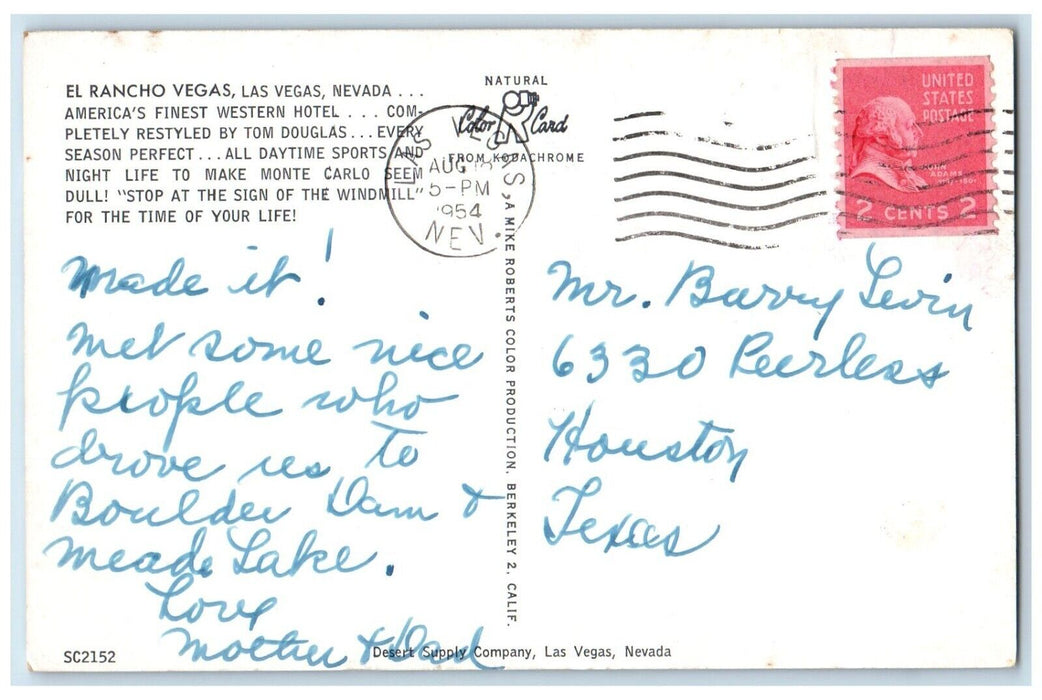 EL RANCHO VEGAS, LAS VEGAS, NEVADA ...
AMERICA'S FINEST WESTERN HOTEL ... COM-
PLETELY RESTYLED BY TOM DOUGLAS ... EVERY
SEASON PERFECT ... ALL DAYTIME SPORTS AND
NIGHT LIFE TO MAKE MONTE CARLO SEEM
DULL! "STOP AT THE SIGN OF THE WINDMILL"
FOR THE TIME OF YOUR LIFE!
NATURAL
Color Card
FROM KODACHROME
LAS VEGAS,
AUG
5-PM
1954
NEV.
UNITED
STATES
POSTAGE
JOHN
ADAMS
2 CENTS 2
Made it!
Met some nice
people who
drove us to
Boulder Dam &
Meade Lake.
Love
Mother & Dad
A MIKE ROBERTS COLOR PRODUCTION. BERKELEY 2, CALIF.
Mr. Barry Levin
6330 Peerless
Houston
Texas
SC2152
Desert Supply Company, Las Vegas, Nevada